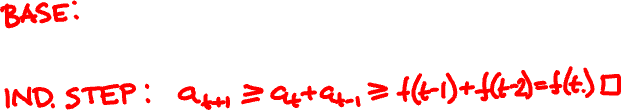 BASE:
IND. STEP: a_{t+1} ≥ a_t + a_{t-1} ≥ f(t-1) + f(t-2) = f(t.) □